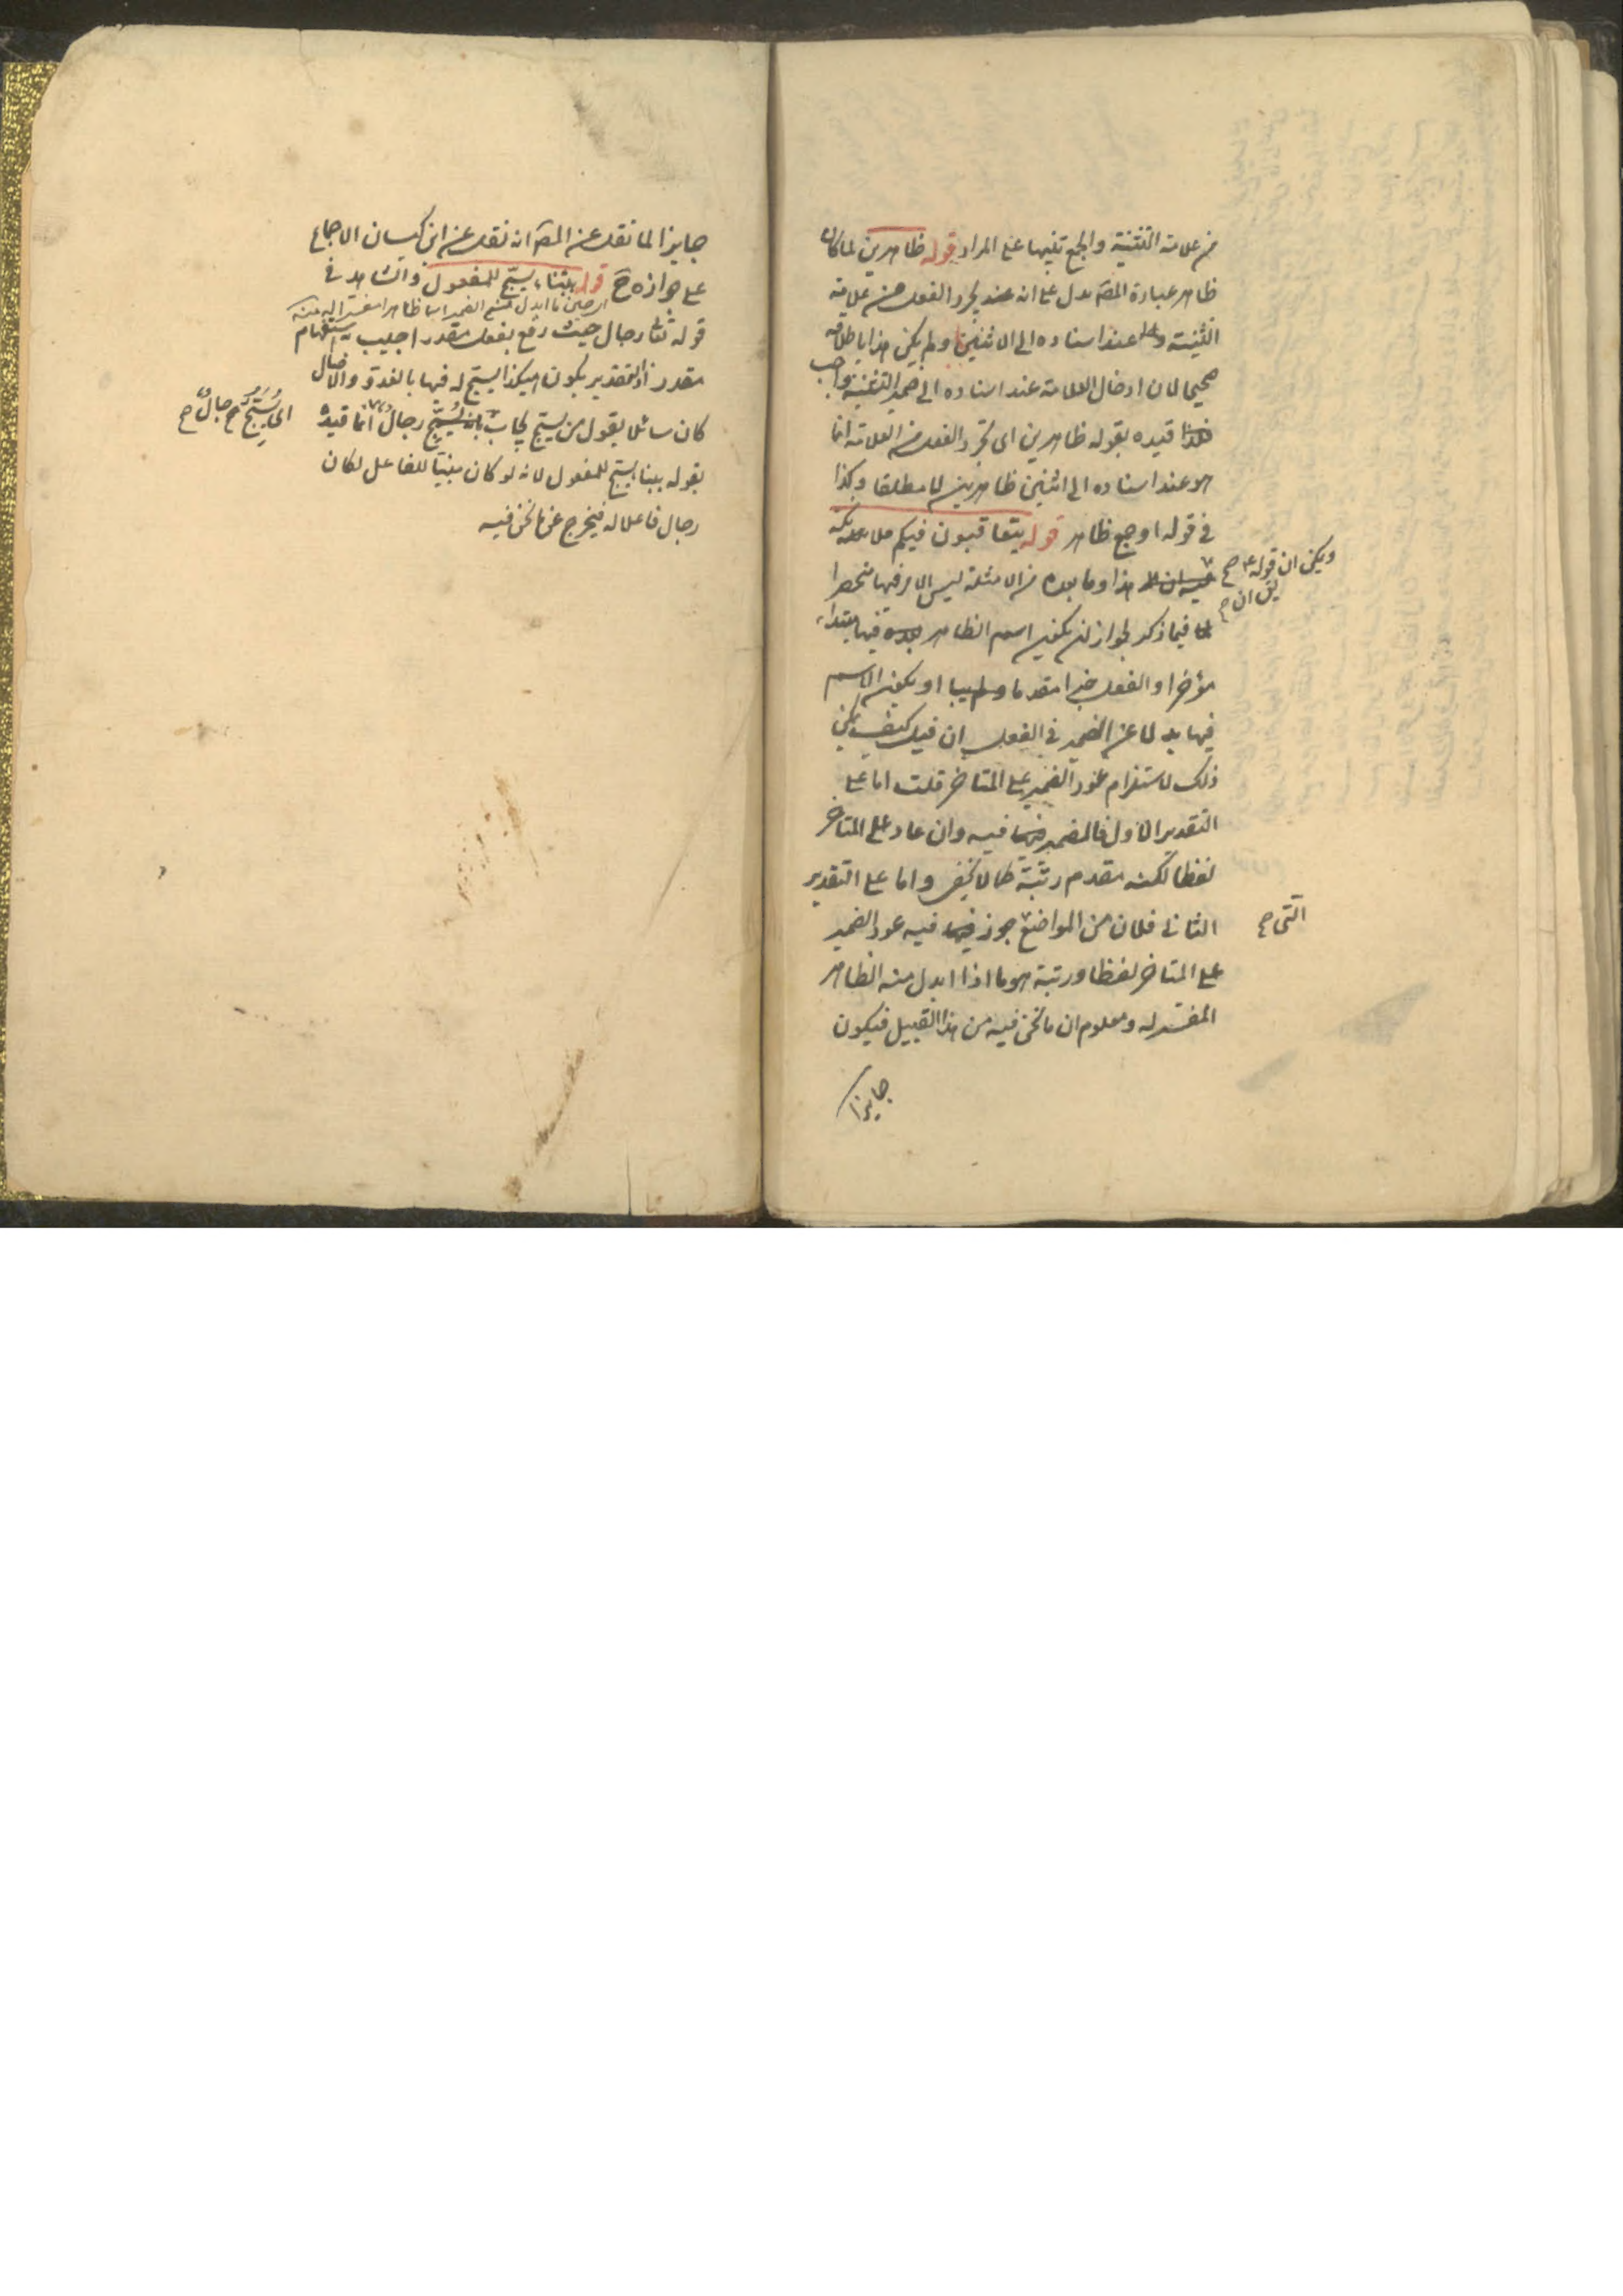 من علامة التثنية والجمع تنبيها على المراد قوله ظاهرين لما كان
ظاهر عبارة المصـ يدل على ان عند تجرد الفعل من علامة
التثنية عند اسناده الى الاثنين ولم يكن هذا باطلاقه
صحيحا لان ادخال العلامة عند اسناده الى ضمير التثنية واجب
قيده بقوله ظاهرين اى تجرد الفعل من العلامة انما
هو عند اسناده الى اثنين ظاهرين لا مطلقا وكذا
فى قوله او جمع ظاهر قوله يتعاقبون فيكم ملائكة
ويمكن ان قوله صح
يق ان صح
هذا وما بعده من الامثلة ليس الامر فيها منحصرا
فيما ذكر لجواز ان يكون اسم الظاهر فيها مبتداء
مؤخرا والفعل خبرا مقدما او يكون الاسم
فيها بدلا عن الضمير فى الفعل ان قيل كيف يمكن
ذلك لاستلزام عود الضمير على المتاخر قلت اما على
التقدير الاول فالضمير فيه وان عاد على المتاخر
لفظا لكنه مقدم رتبة كما لا يخفى واما على التقدير
التى صح
الثانى فلان من المواضع جوز فيه عود الضمير
على المتاخر لفظا ورتبة هو ما اذا ابدل منه الظاهر
المفسر له ومعلوم ان ما نحن فيه من هذا القبيل فيكون
جايزا
جايزا لما نقل عن المصـ انه نقل عن ابن كيسان الاجماع
على جوازه ح قوله ببناء يسبح للمفعول والشاهد فى
قوله تعا رجال حيث رفع بفعل مقدر اجيب به استفهام
مقدر اذ التقدير يكون هكذا يسبح له فيها بالغدو والاصال
كان سائلا يقول من يسبح يجاب رجال انما قيده
يُسَبِّحُ رجالٌ صح
بقوله ببناء يسبح للمفعول لانه لو كان مبنيا للفاعل لكان
رجال فاعلا له فيخرج عن ما نحن فيه